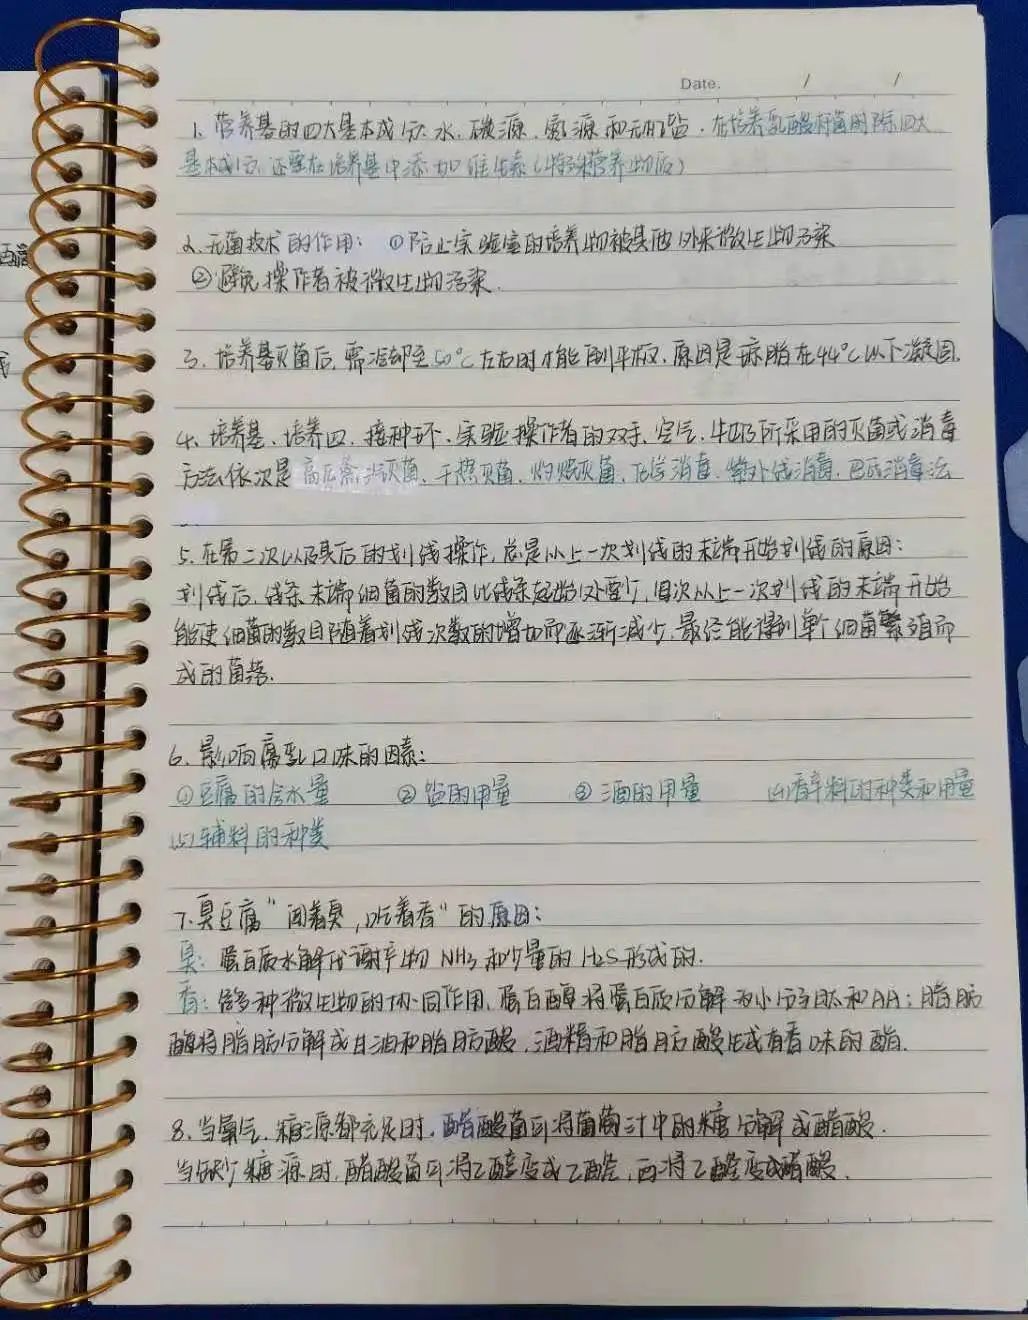 Date. / /
1. 营养基的四大基本成分: 水、碳源、氮源和无机盐. 在培养乳酸杆菌时除四大
基本成分, 还要在培养基中添加维生素(特殊营养物质)
2. 无菌技术的作用: ①防止实验室的培养物被其他外来微生物污染
②避免操作者被微生物污染.
3. 培养基灭菌后, 需冷却至50°C左右时才能倒平板. 原因是琼脂在44°C以下凝固.
4. 培养基、培养皿、接种环、实验操作者的双手、空气、牛奶所采用的灭菌或消毒
方法依次是高压蒸汽灭菌、干热灭菌、灼烧灭菌、化学消毒、紫外线消毒、巴氏消毒法
5. 在第二次以及其后的划线操作, 总是从上一次划线的末端开始划线的原因:
划线后, 线条末端细菌的数目比线条起始处要少, 每次从上一次划线的末端开始
能使细菌的数目随着划线次数的增加而逐渐减少, 最终能得到单个细菌繁殖而
成的菌落.
6. 影响腐乳口味的因素:
①豆腐的含水量 ②盐的用量 ③酒的用量 (4)香辛料的种类和用量
(5)辅料的种类
7. 臭豆腐"闻着臭, 吃着香"的原因:
臭: 蛋白质水解代谢产物NH3和少量的H2S形成的.
香: 经多种微生物的协同作用, 蛋白酶将蛋白质分解为小分子肽和AA; 脂肪
酶将脂肪分解成甘油和脂肪酸, 酒精和脂肪酸生成有香味的酯.
8. 当氧气、糖源都充足时, 醋酸菌可将葡萄汁中的糖分解成醋酸.
当缺少糖源时, 醋酸菌可将乙醇变成乙醛, 再将乙醛变成醋酸.